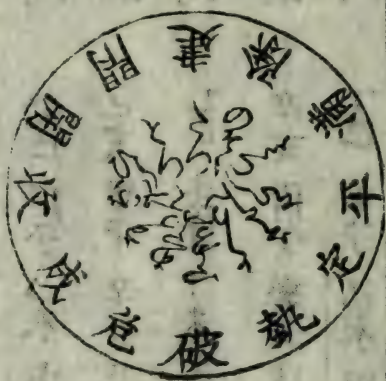 建除滿平定執破危成收開閉